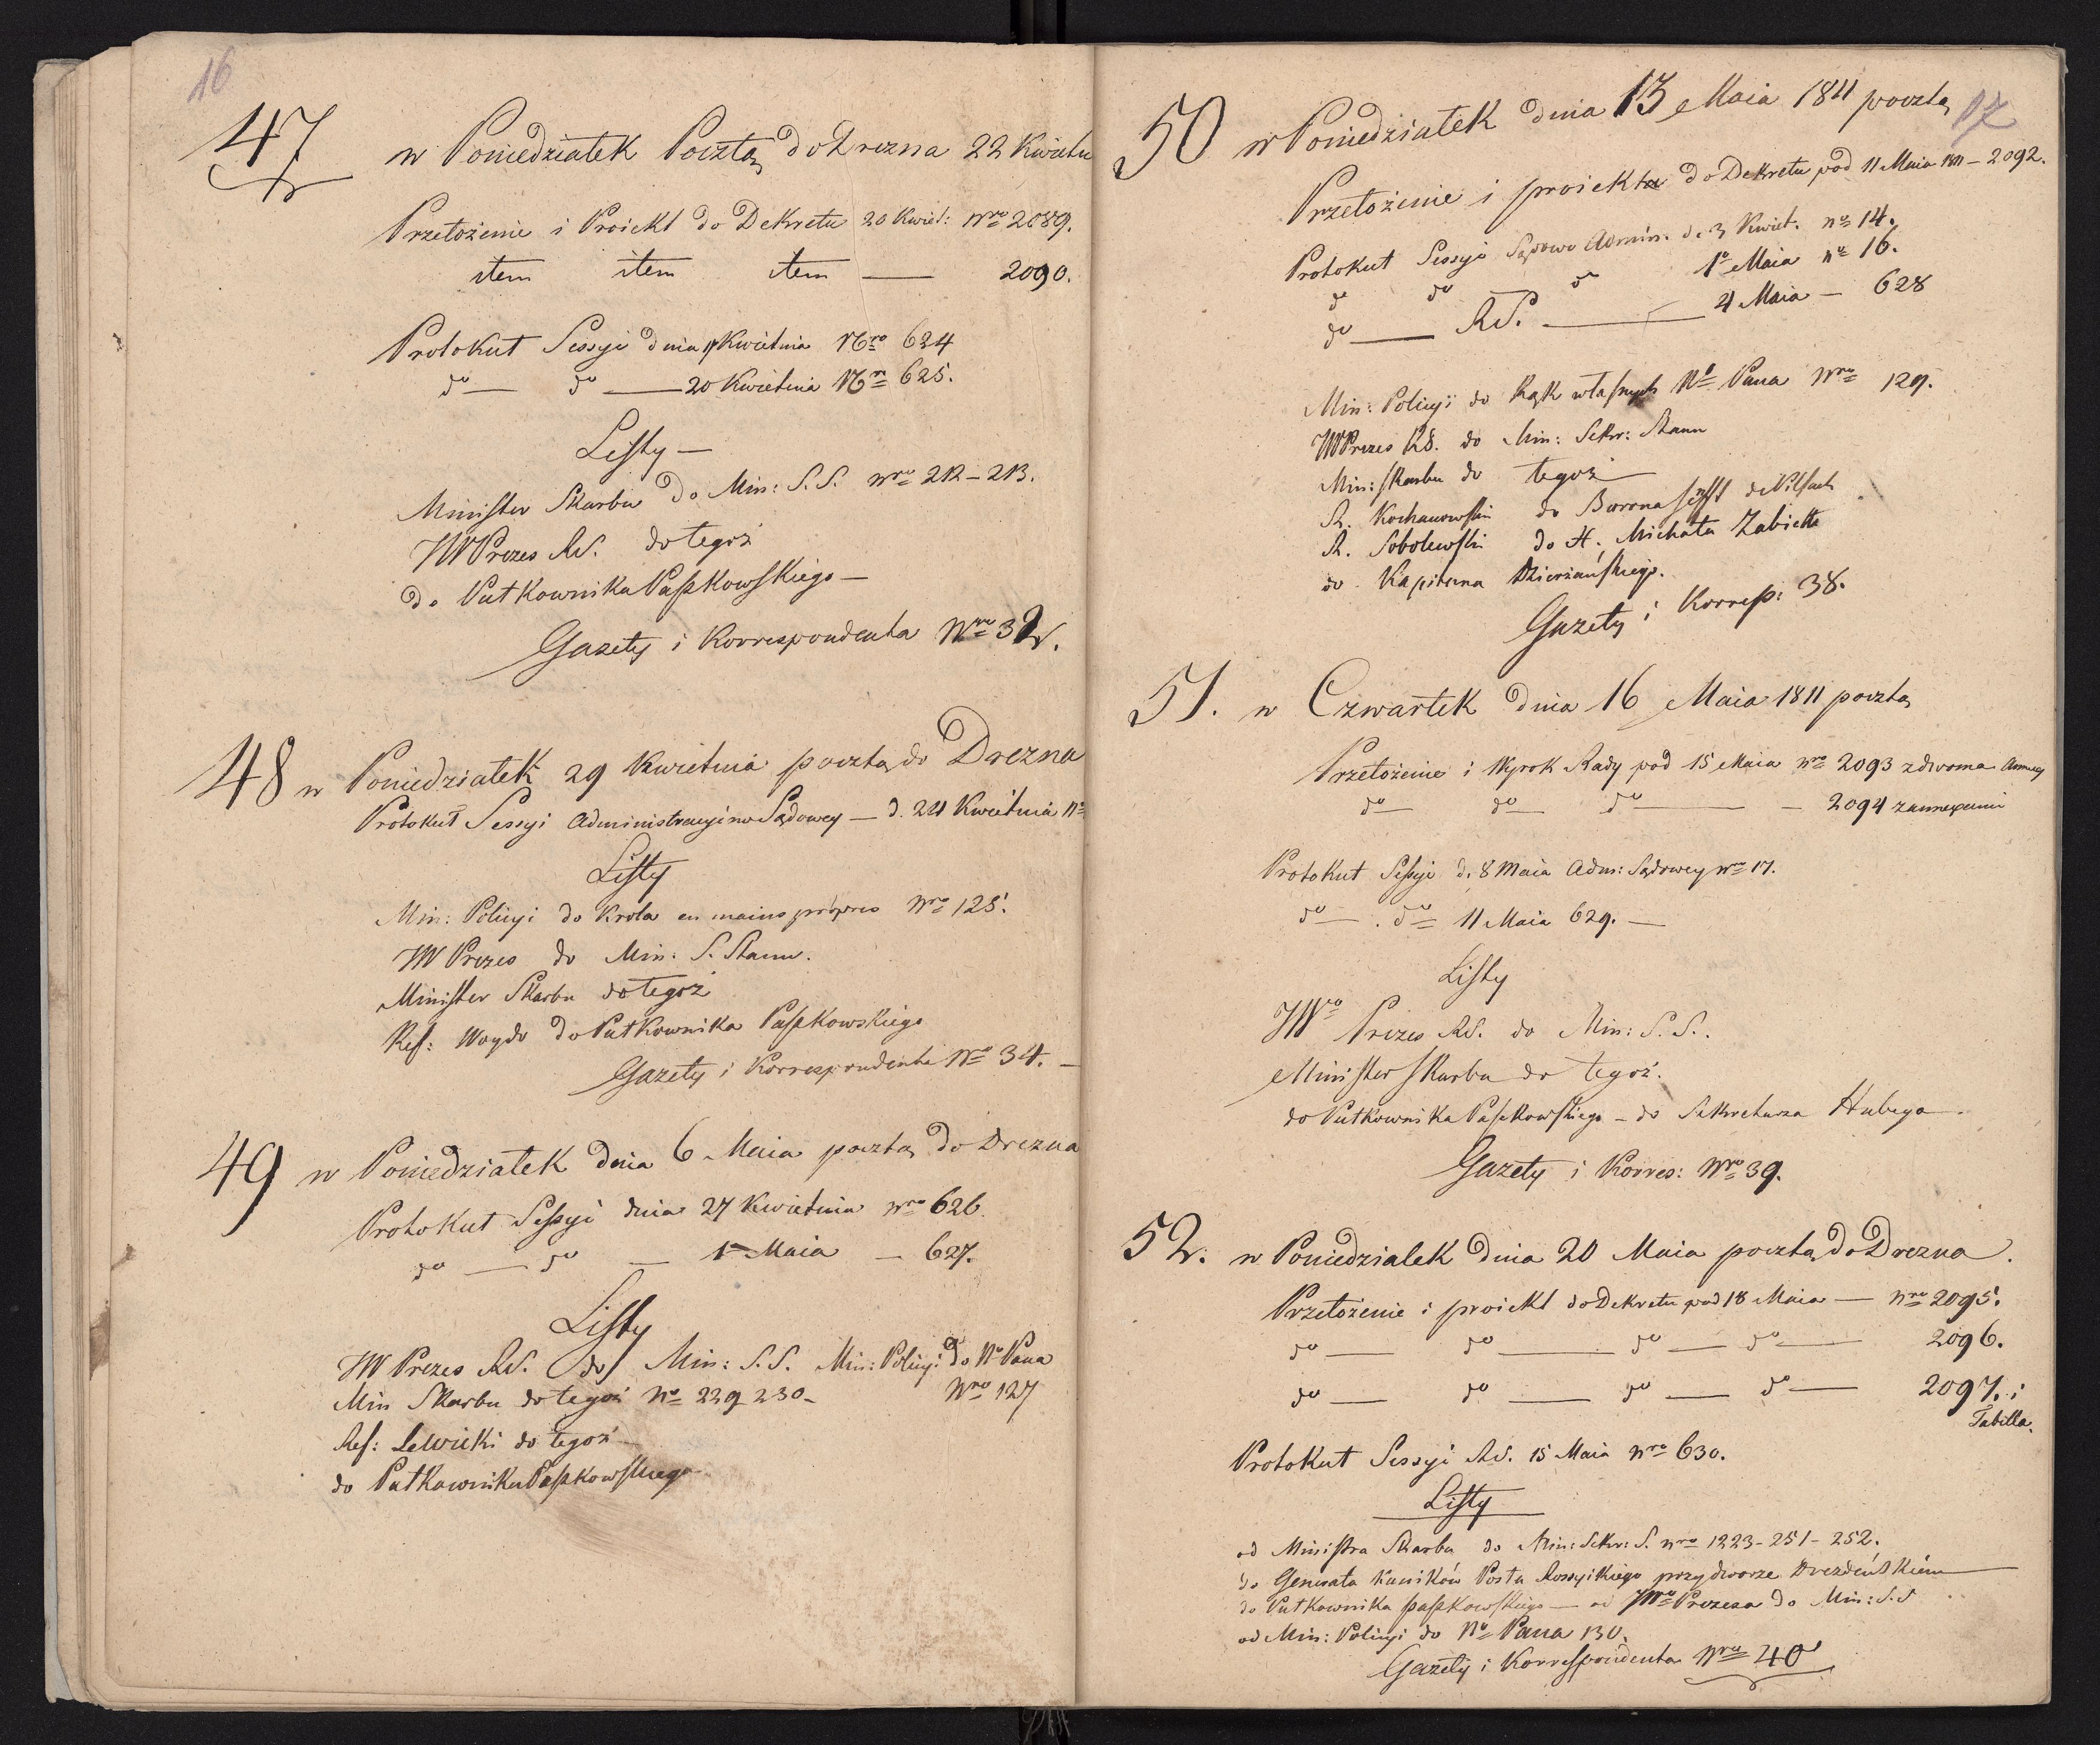 16
47 w Poniedziałek Pocztą do Drezna 22 Kwietn
Przełożenie i Proiekt do Dekretu 20 Kwiet: Nro 2089.
item item item — 2090.
Protokuł Sessyi dnia 17 Kwietnia Nro 624
do — do — 20 Kwietnia Nro 625.
Listy —
Minister Skarbu do Min: S.S. nro 212 - 213.
JW Prezes RS. do tegoż
do Pułkownika Paszkowskiego —
Gazety i Korrespondenta Nro 32.
48 w Poniedziałek 29 Kwietnia pocztą do Drezna
Protokuł Sessyi Administracyino Sądowey — d. 24 Kwietnia No
Listy
Min: Policyi do Krola en mains propres Nro 125.
JW Prezes do Min: S. Stanu.
Minister Skarbu do tegoż
Ref: Woyda do Pułkownika Paszkowskiego
Gazety i Korrespondenta Nro 34. —
49 w Poniedziałek dnia 6 Maia pocztą do Drezna
Protokuł Sessyi dnia 27 Kwietnia nro 626.
do — do — 1 Maia — 627.
Listy
JW Prezes RS. do Min: S.S. Min: Policyi do No Pana
Min Skarbu do tegoż No 229 230 — Nro 127
Ref: Lewicki do tegoż —
do Pułkownika Paszkowskiego
17
50 w Poniedziałek dnia 13 Maia 1811 pocztą
Przełożenie i proiekta do Dekretu pod 11 Maia 1811 — 2092.
Protokuł Sessyi Sądowo Admin. d. 3 Kwiet. no 14.
do do do 1o Maia no 16.
do — RS. — 4 Maia — 628
Min: Policyi do Rąk własnych No Pana Nro 129.
JW Prezes RS. do Min: Sekr: Stanu
Min: Skarbu do tegoż
R. Kochanowski do Barona Senfft de Pilsach
R. Sobolewski do H. Michała Zabiełła
do Kapitana Dzierżańskiego.
Gazety i Korresp: 38.
51. w Czwartek dnia 16 Maia 1811 pocztą
Przełożenie i Wyrok Rady pod 15 Maia nro 2093 z dwoma Annexy
do — do — do — 2094 z annexami
Protokuł Sessyi d. 8 Maia Adm: Sądowey nro 17.
do — . do 11 Maia 629. —
Listy
JWo Prezes RS. do Min: S.S.
Minister Skarbu do tegoż.
do Pułkownika Paszkowskiego — do Sekretarza Hubego.
Gazety i Korres: Nro 39.
52. w Poniedziałek dnia 20 Maia pocztą do Drezna.
Przełożenie i proiekt do Dekretu pod 18 Maia — nro 2095.
do — do — do — do — 2096.
do — do — do — do — 2097. i
Tabella.
Protokuł Sessyi RS. 15 Maia nro 630.
Listy
od Ministra Skarbu do Min: Sekr: S. nro 1223 - 251 - 252.
do Generała Kanikow Posła Rossyiskiego przy dworze Drezdeńskiem
do Pułkownika Paszkowskiego — od JWo Prezesa do Min: S.S
od Min: Policyi do No Pana 130.
Gazety i Korrespondenta Nro 40